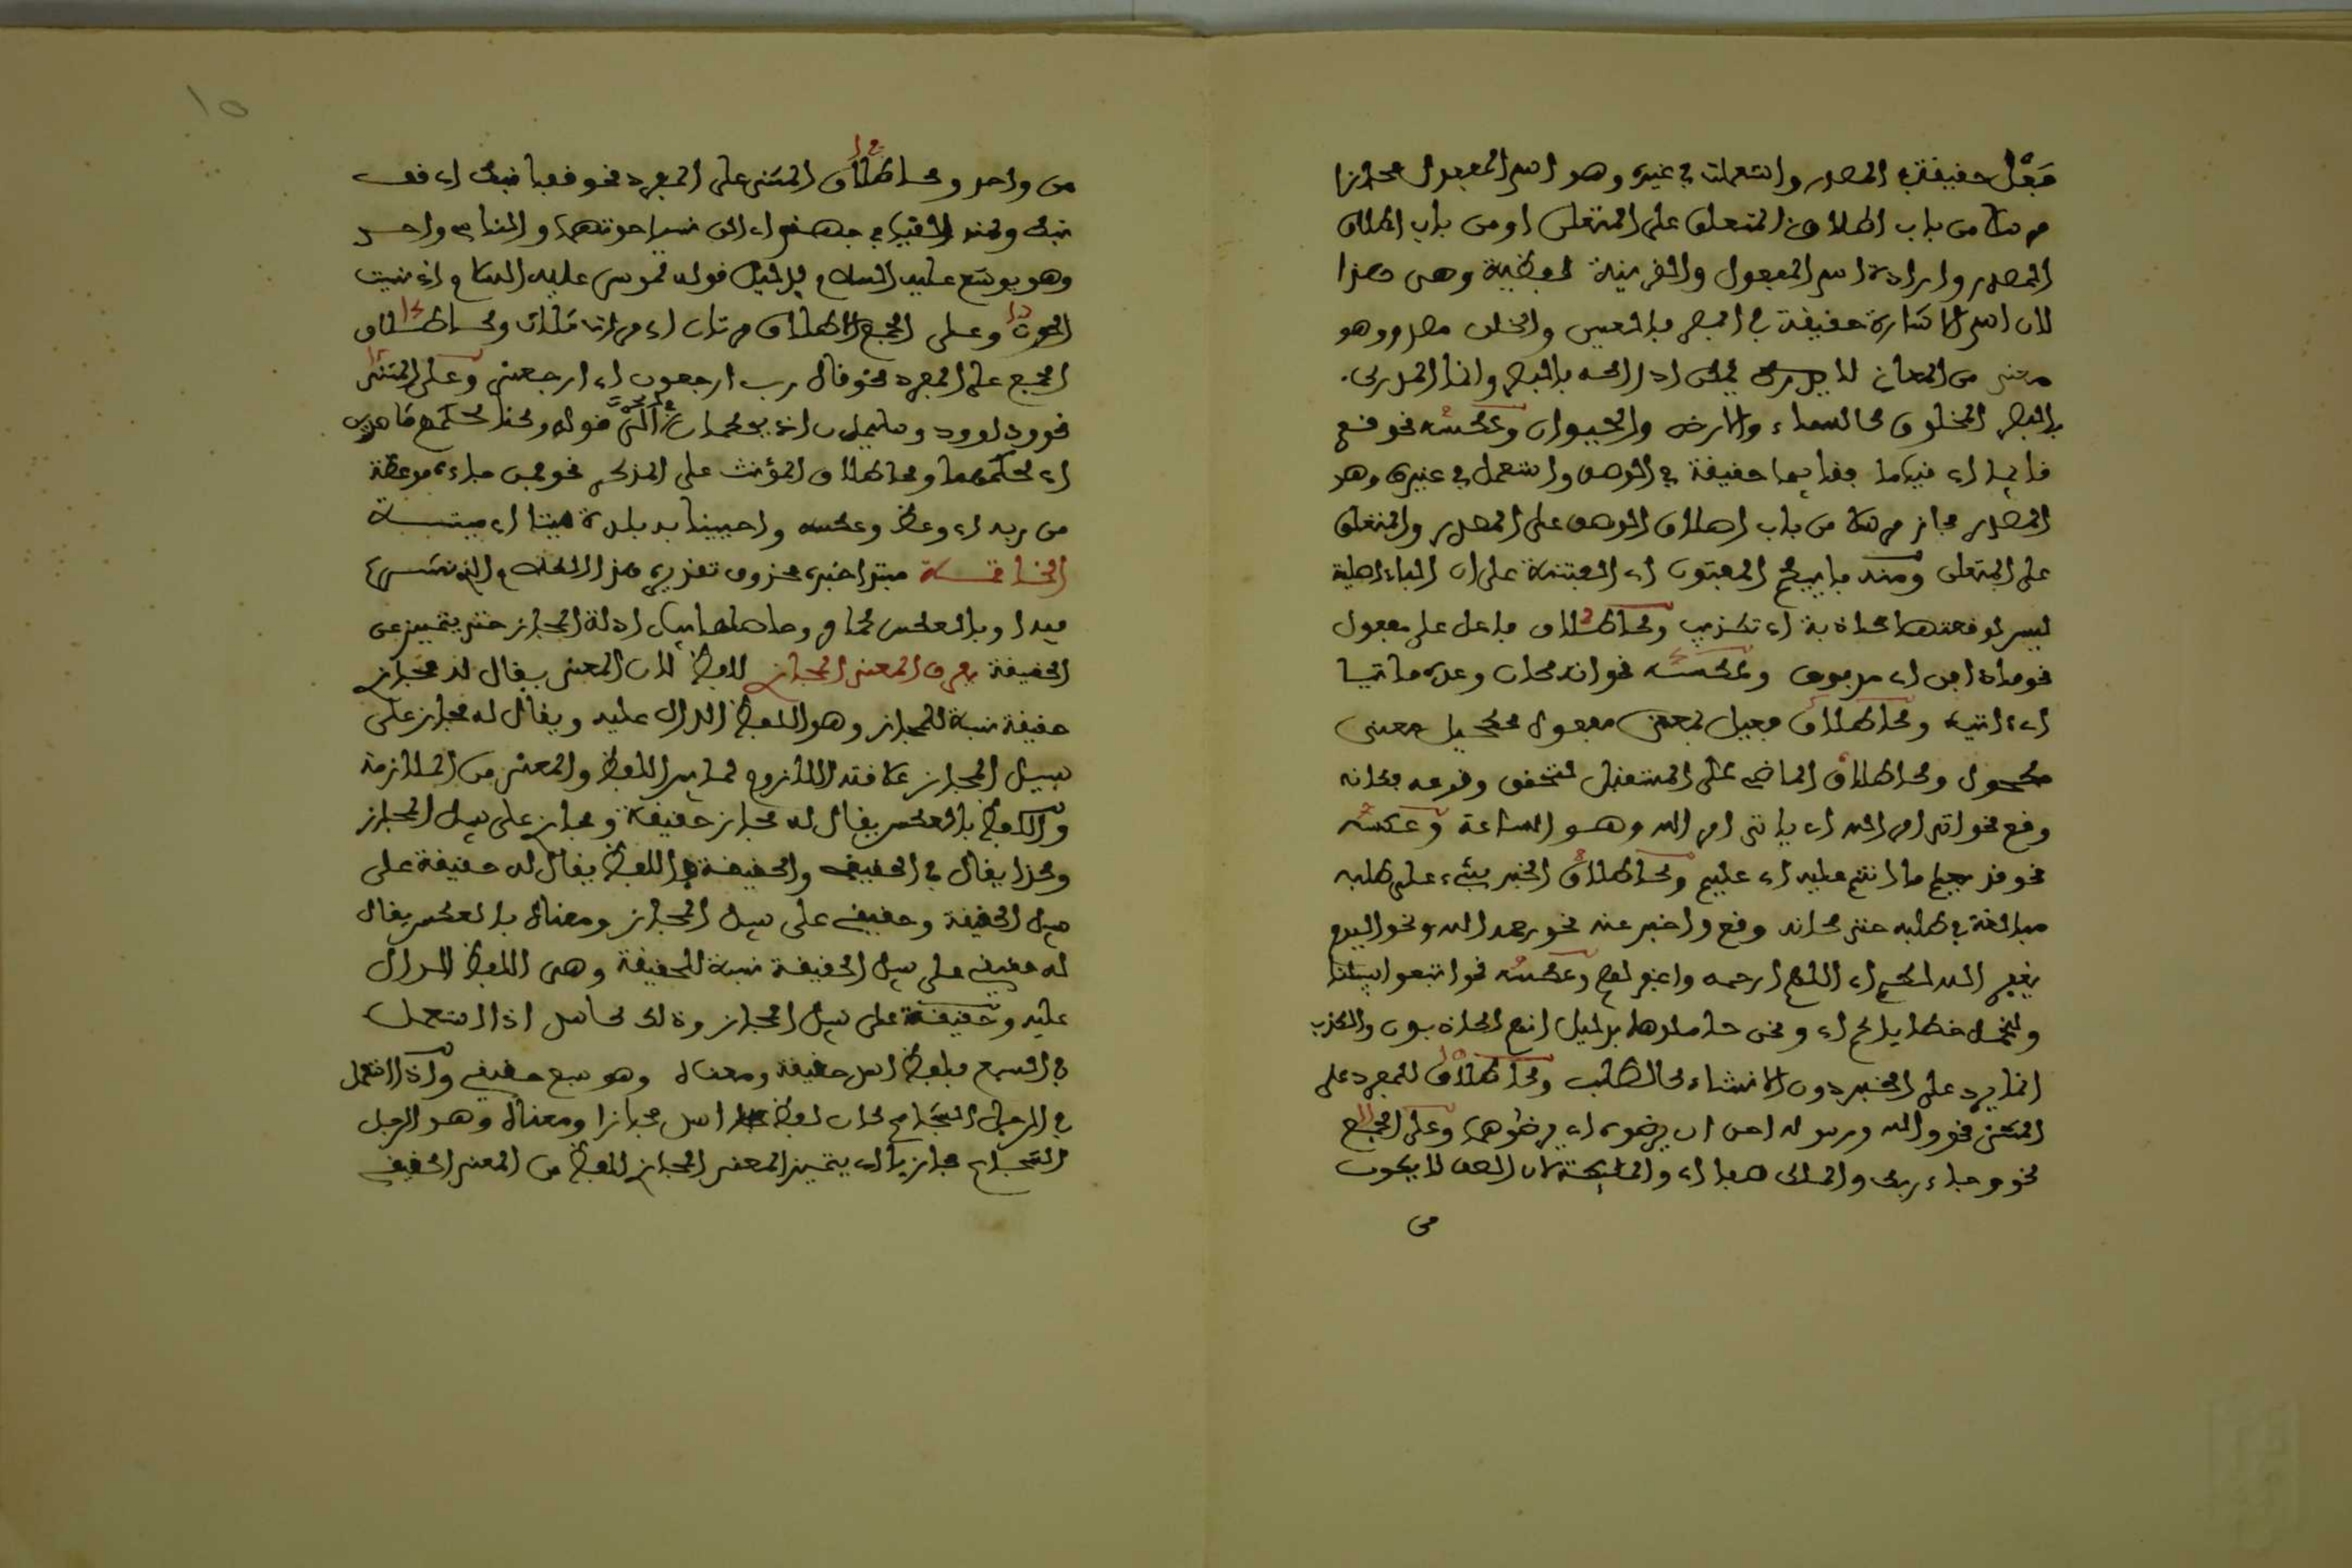 فعل حقيقة في المصدر واستعملت في غيره وهو اسم المفعول مجازا
مرسلا من باب اطلاق المتعلق على المتعلق او من باب اطلاق
المصدر وارادة اسم المفعول والقرينة لفظية وهي هذا
لان اسم الاشارة حقيقة في المبصر بالعين والخلق مصدر وهو
معنى من المعاني لا يمكن ادراكه بالبصر وانما المدرك
بالبصر المخلوق كالسماء والارض والحيوان وعكسه نحو قم
قائما اي قياما فقائما حقيقة في الوصف واستعمل في غيره وهو
المصدر مجاز مرسلا من باب اطلاق الوصف على المصدر والمتعلق
على المتعلق ومنه بأييكم المفتون اي الفتنة على ان الباء اصلية
ليس لوقعتها كاذبة اي تكذيب وكاطلاق فاعل على مفعول
نحو ماء دافق اي مدفوق وعكسه نحو انه كان وعده ماتيا
اي ءاتيا وكاطلاق فعيل بمعنى مفعول ككحيل بمعنى
مكحول وكاطلاق الماضي على المستقبل لتحقق وقوعه فكانه
وقع نحو اتى امر الله اي ياتي امر الله وهو الساعة وعكسه
نحو قد يعلم ما انتم عليه اي علم وكاطلاق الخبر على طلبه
مبالغة في طلبه حتى كانه وقع واخبر عنه نحو رحمه الله ونحو اليوم
يغفر الله لكم اي اللهم ارحمه واغفر لهم وعكسه نحو اتبعوا سبيلنا
ولنحمل خطاياكم اي ونحن حاملوها بدليل انهم لكاذبون والكذب
انما يرد على الخبر دون الانشاء كالطلب وكاطلاق المفرد على
المثنى نحو والله ورسوله احق ان يرضوه اي يرضوهما وعلى الجمع
نحو وجاء ربك والملك صفا اي والملائكة لان الصف لا يكون
من
من واحد وكاطلاق المثنى على المفرد نحو قفا نبك اي قف
نبك ومنه القيا في جهنم اي الق نسيا حوتهما والناسي واحد
وهو يوشع عليه السلام بدليل قوله لموسى عليه السلام اني نسيت
الحوت وعلى الجمع الطلاق مرتان اي مرات ثلاث وكاطلاق
الجمع على المفرد نحو قال رب ارجعون اي ارجعني وعلى المثنى
نحو داوود وسليمان اذ يحكمان في الحرث قوله وكنا لحكمهم شاهدين
اي لحكمهما وكاطلاق المؤنث على المذكر نحو فمن جاءه موعظة
من ربه اي وعظ وعكسه واحيينا به بلدة ميتا اي ميتة
الخاتمة مبتدا خبره محذوف تقديره هذا الكلام الذي نشرع
فيه او بالعكس كما مر وحاصلها بيان ادلة المجاز حتى يتميز عن
الحقيقة يعرف المعنى المجازي للفظ لان المعنى يقال له مجازي
حقيقة نسبة للمجاز وهو اللفظ الدال عليه ويقال له مجاز على
سبيل المجاز علاقته اللزوم لما بين اللفظ والمعنى من الملازمة
واللفظ بالعكس يقال له مجاز حقيقة ومجازي على سبيل المجاز
وكذا يقال في الحقيقي والحقيقة فاللفظ يقال له حقيقة على
سبيل الحقيقة وحقيقي على سبيل المجاز ومعناه بالعكس يقال
له حقيقي على سبيل الحقيقة نسبة للحقيقة وهي اللفظ الدال
عليه وحقيقة على سبيل المجاز وذلك كاسد اذا استعمل
في السبع فلفظ اسد حقيقة ومعناه وهو سبع حقيقي واذا استعمل
في الرجل الشجاع كان لفظ اسد مجازا ومعناه وهو الرجل
الشجاع مجازيا اي يتميز المعنى المجازي للفظ من المعنى الحقيقي
١٥